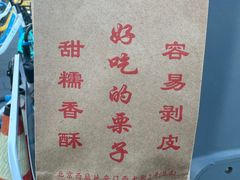 甜糯香酥
好吃的栗子
容易剥皮